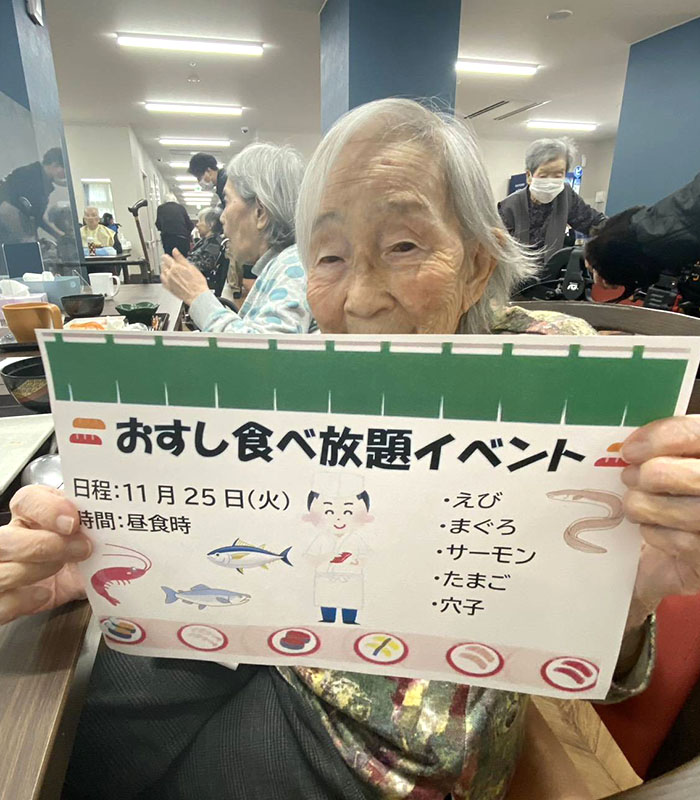 おすし食べ放題イベント
日程：11月25日(火)
時間：昼食時
・えび
・まぐろ
・サーモン
・たまご
・穴子